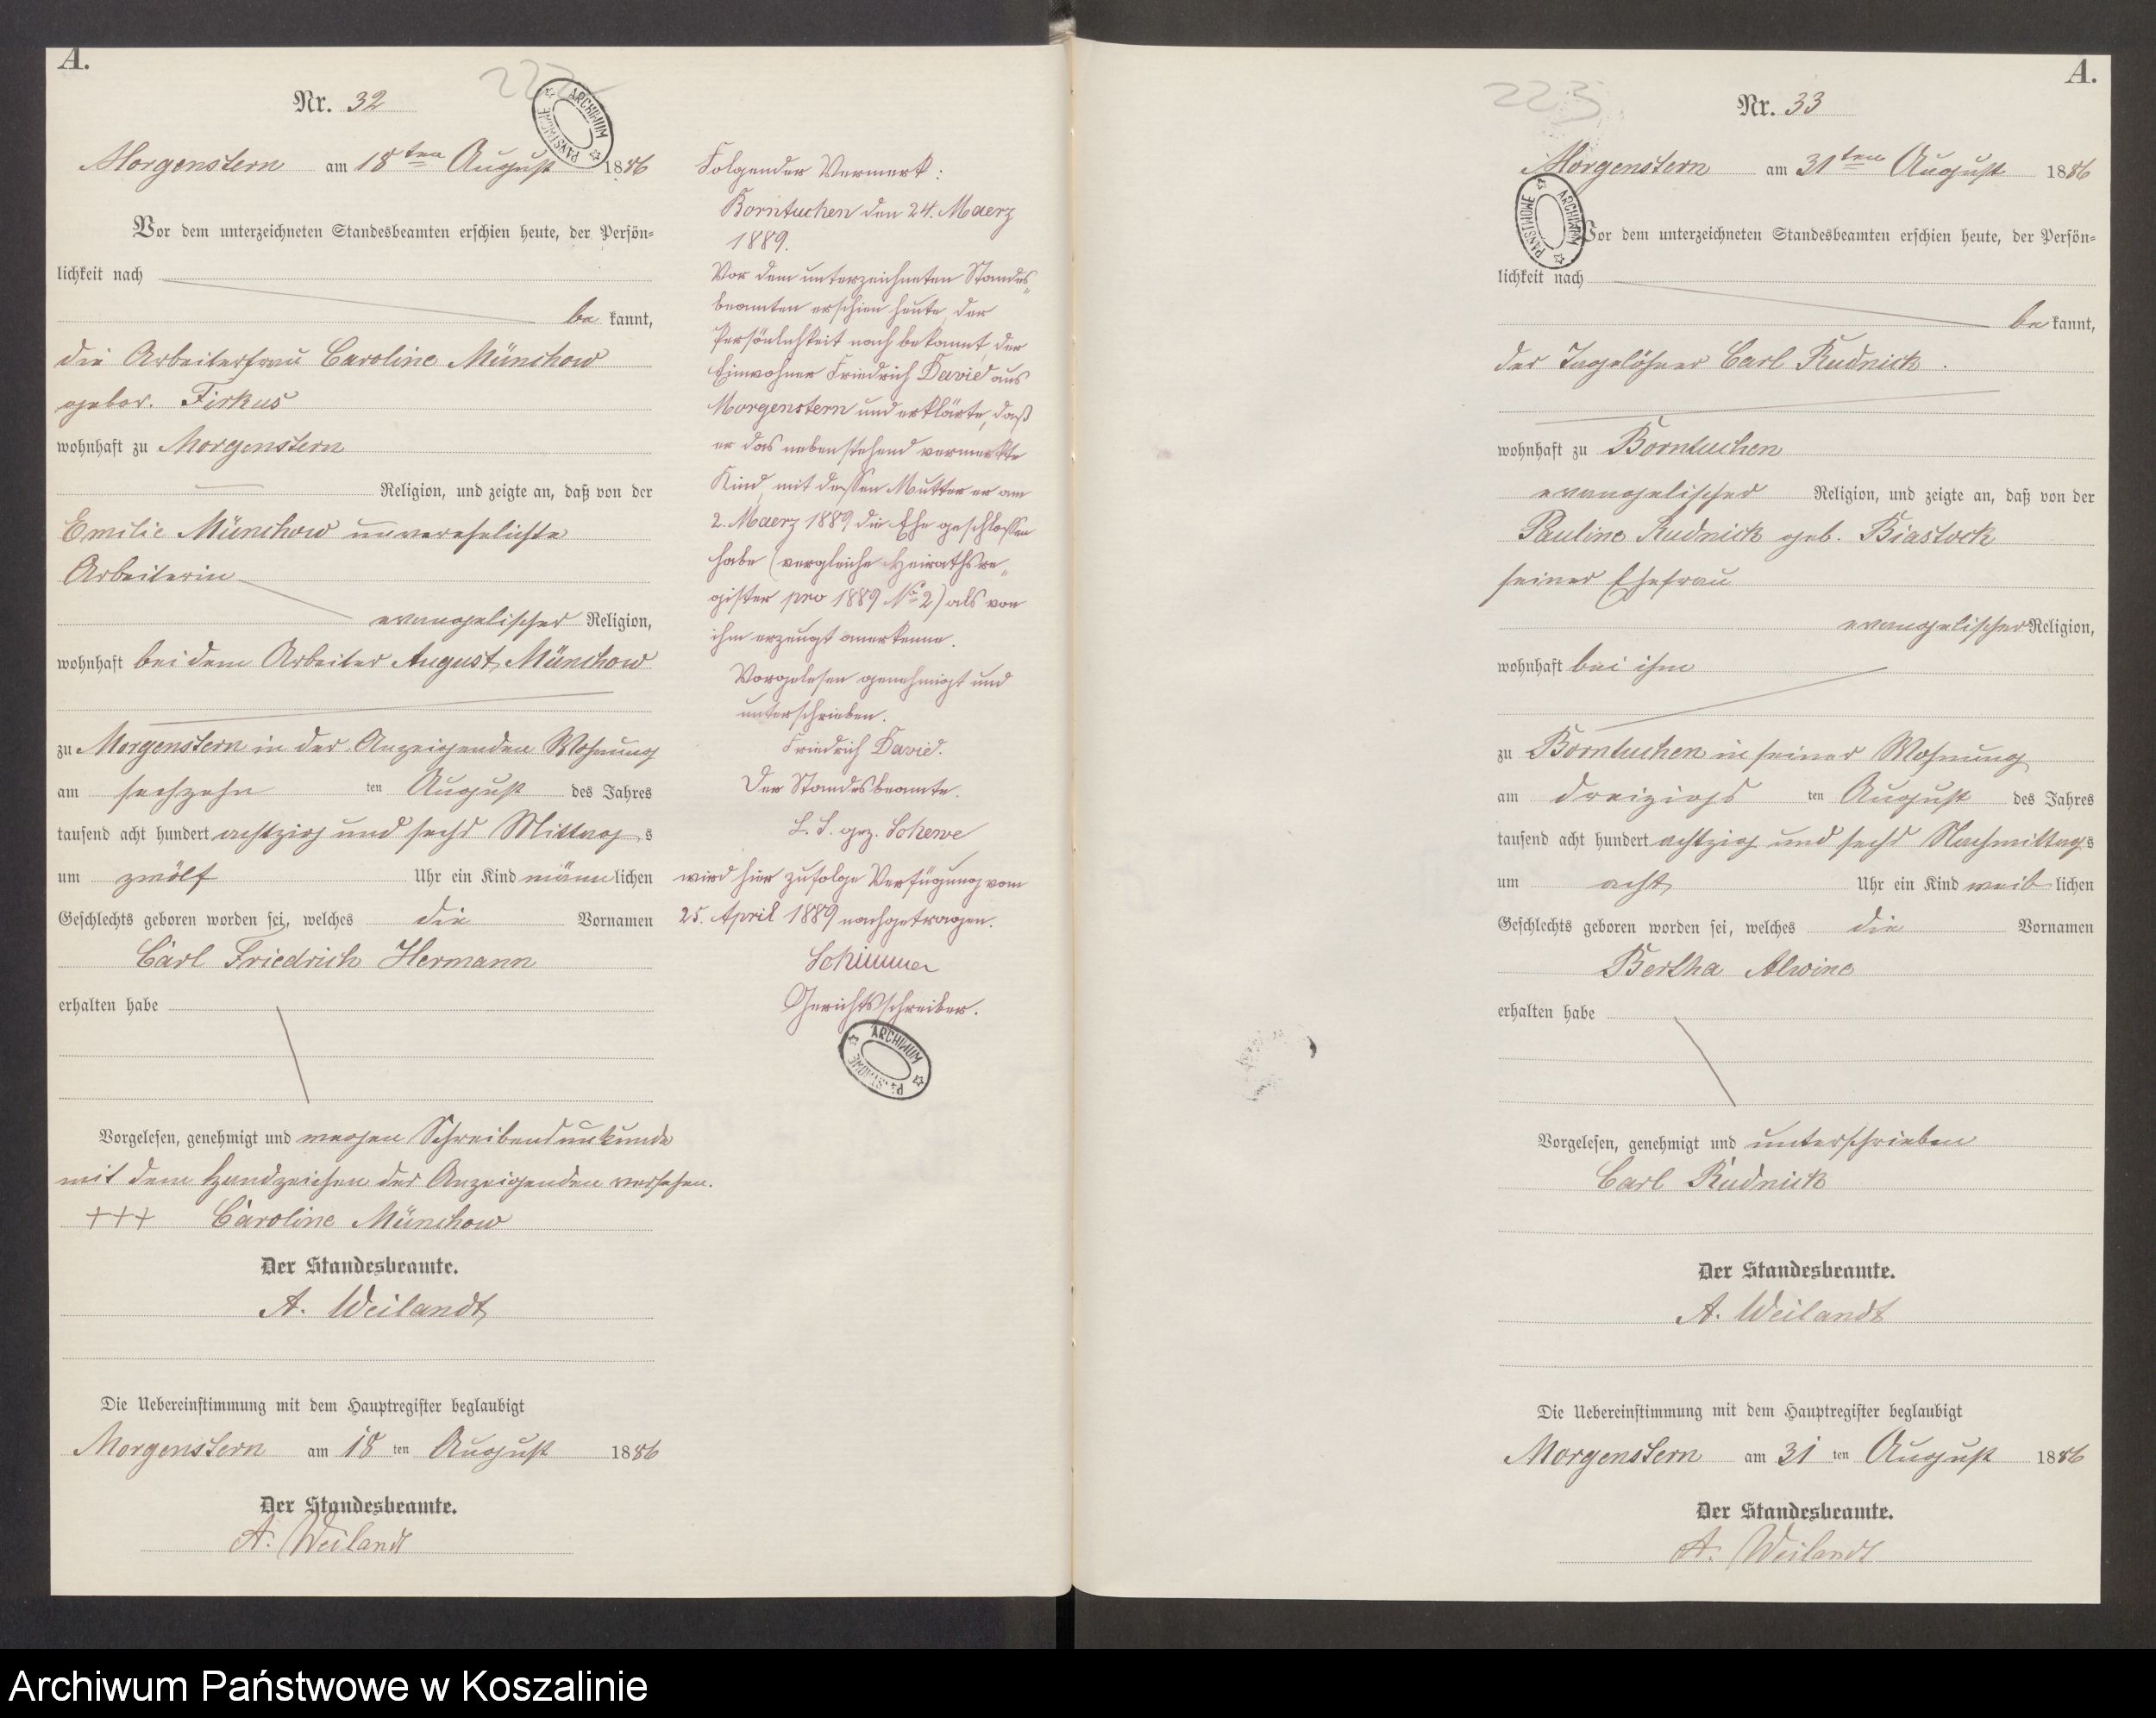 A.
Nr. 32
222
ARCHIWUM PAŃSTWOWE
Morgenstern am 18ten August 1886
Vor dem unterzeichneten Standesbeamten erschien heute, der Persön-
lichkeit nach
be kannt,
die Arbeiterfrau Caroline Münchow
gebor. Firkus
wohnhaft zu Morgenstern
Religion, und zeigte an, daß von der
Emilie Münchow unverehelichte
Arbeiterin
evangelischer Religion,
wohnhaft bei dem Arbeiter August Münchow
zu Morgenstern in der Anzeigenden Wohnung
am sechzehn ten August des Jahres
tausend acht hundert achtzig und sechs Mittag s
um zwölf Uhr ein Kind männ lichen
Geschlechts geboren worden sei, welches die Vornamen
Carl Friedrich Hermann
erhalten habe
Vorgelesen, genehmigt und wegen Schreibensunkunde
mit dem Handzeichen der Anzeigenden versehen.
+++ Caroline Münchow
Der Standesbeamte.
A. Weilandt
Die Uebereinstimmung mit dem Hauptregister beglaubigt
Morgenstern am 18 ten August 1886
Der Standesbeamte.
A. Weilandt
Folgender Vermerk:
Borntuchen den 24. Maerz
1889.
Vor dem unterzeichneten Standes-
beamten erschien heute, der
Persönlichkeit nach bekannt, der
Einwohner Friedrich David aus
Morgenstern und erklärte, daß
er das nebenstehend vermerkte
Kind, mit dessen Mutter er am
2. Maerz 1889 die Ehe geschlossen
habe (vergleiche Heirathsre-
gister pro 1889 No 2) als von
ihm erzeugt anerkenne.
Vorgelesen genehmigt und
unterschrieben.
Friedrich David.
Der Standesbeamte.
L. S. gez. Schewe
wird hier zufolge Verfügung vom
25. April 1889 nachgetragen.
Schimmer
Gerichtsschreiber.
ARCHIWUM PAŃSTWOWE
A.
223
Nr. 33
Morgenstern am 31ten August 1886
ARCHIWUM PAŃSTWOWE
Vor dem unterzeichneten Standesbeamten erschien heute, der Persön-
lichkeit nach
be kannt,
der Tagelöhner Carl Rudnick.
wohnhaft zu Borntuchen
evangelischer Religion, und zeigte an, daß von der
Pauline Rudnick geb. Biastock
seiner Ehefrau
evangelischer Religion,
wohnhaft bei ihm
zu Borntuchen in seiner Wohnung
am dreizigs ten August des Jahres
tausend acht hundert achtzig und sechs Nachmittag s
um acht Uhr ein Kind weib lichen
Geschlechts geboren worden sei, welches die Vornamen
Bertha Alwine
erhalten habe
Vorgelesen, genehmigt und unterschrieben
Carl Rudnick
Der Standesbeamte.
A. Weilandt
Die Uebereinstimmung mit dem Hauptregister beglaubigt
Morgenstern am 31 ten August 1886
Der Standesbeamte.
A. Weilandt
Archiwum Państwowe w Koszalinie